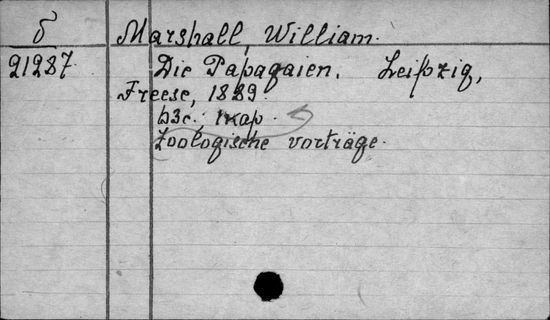 б
Marshall, William.
21287.
Die Papagaien. Leipzig,
Freese, 1889.
Zoologische vorträge.